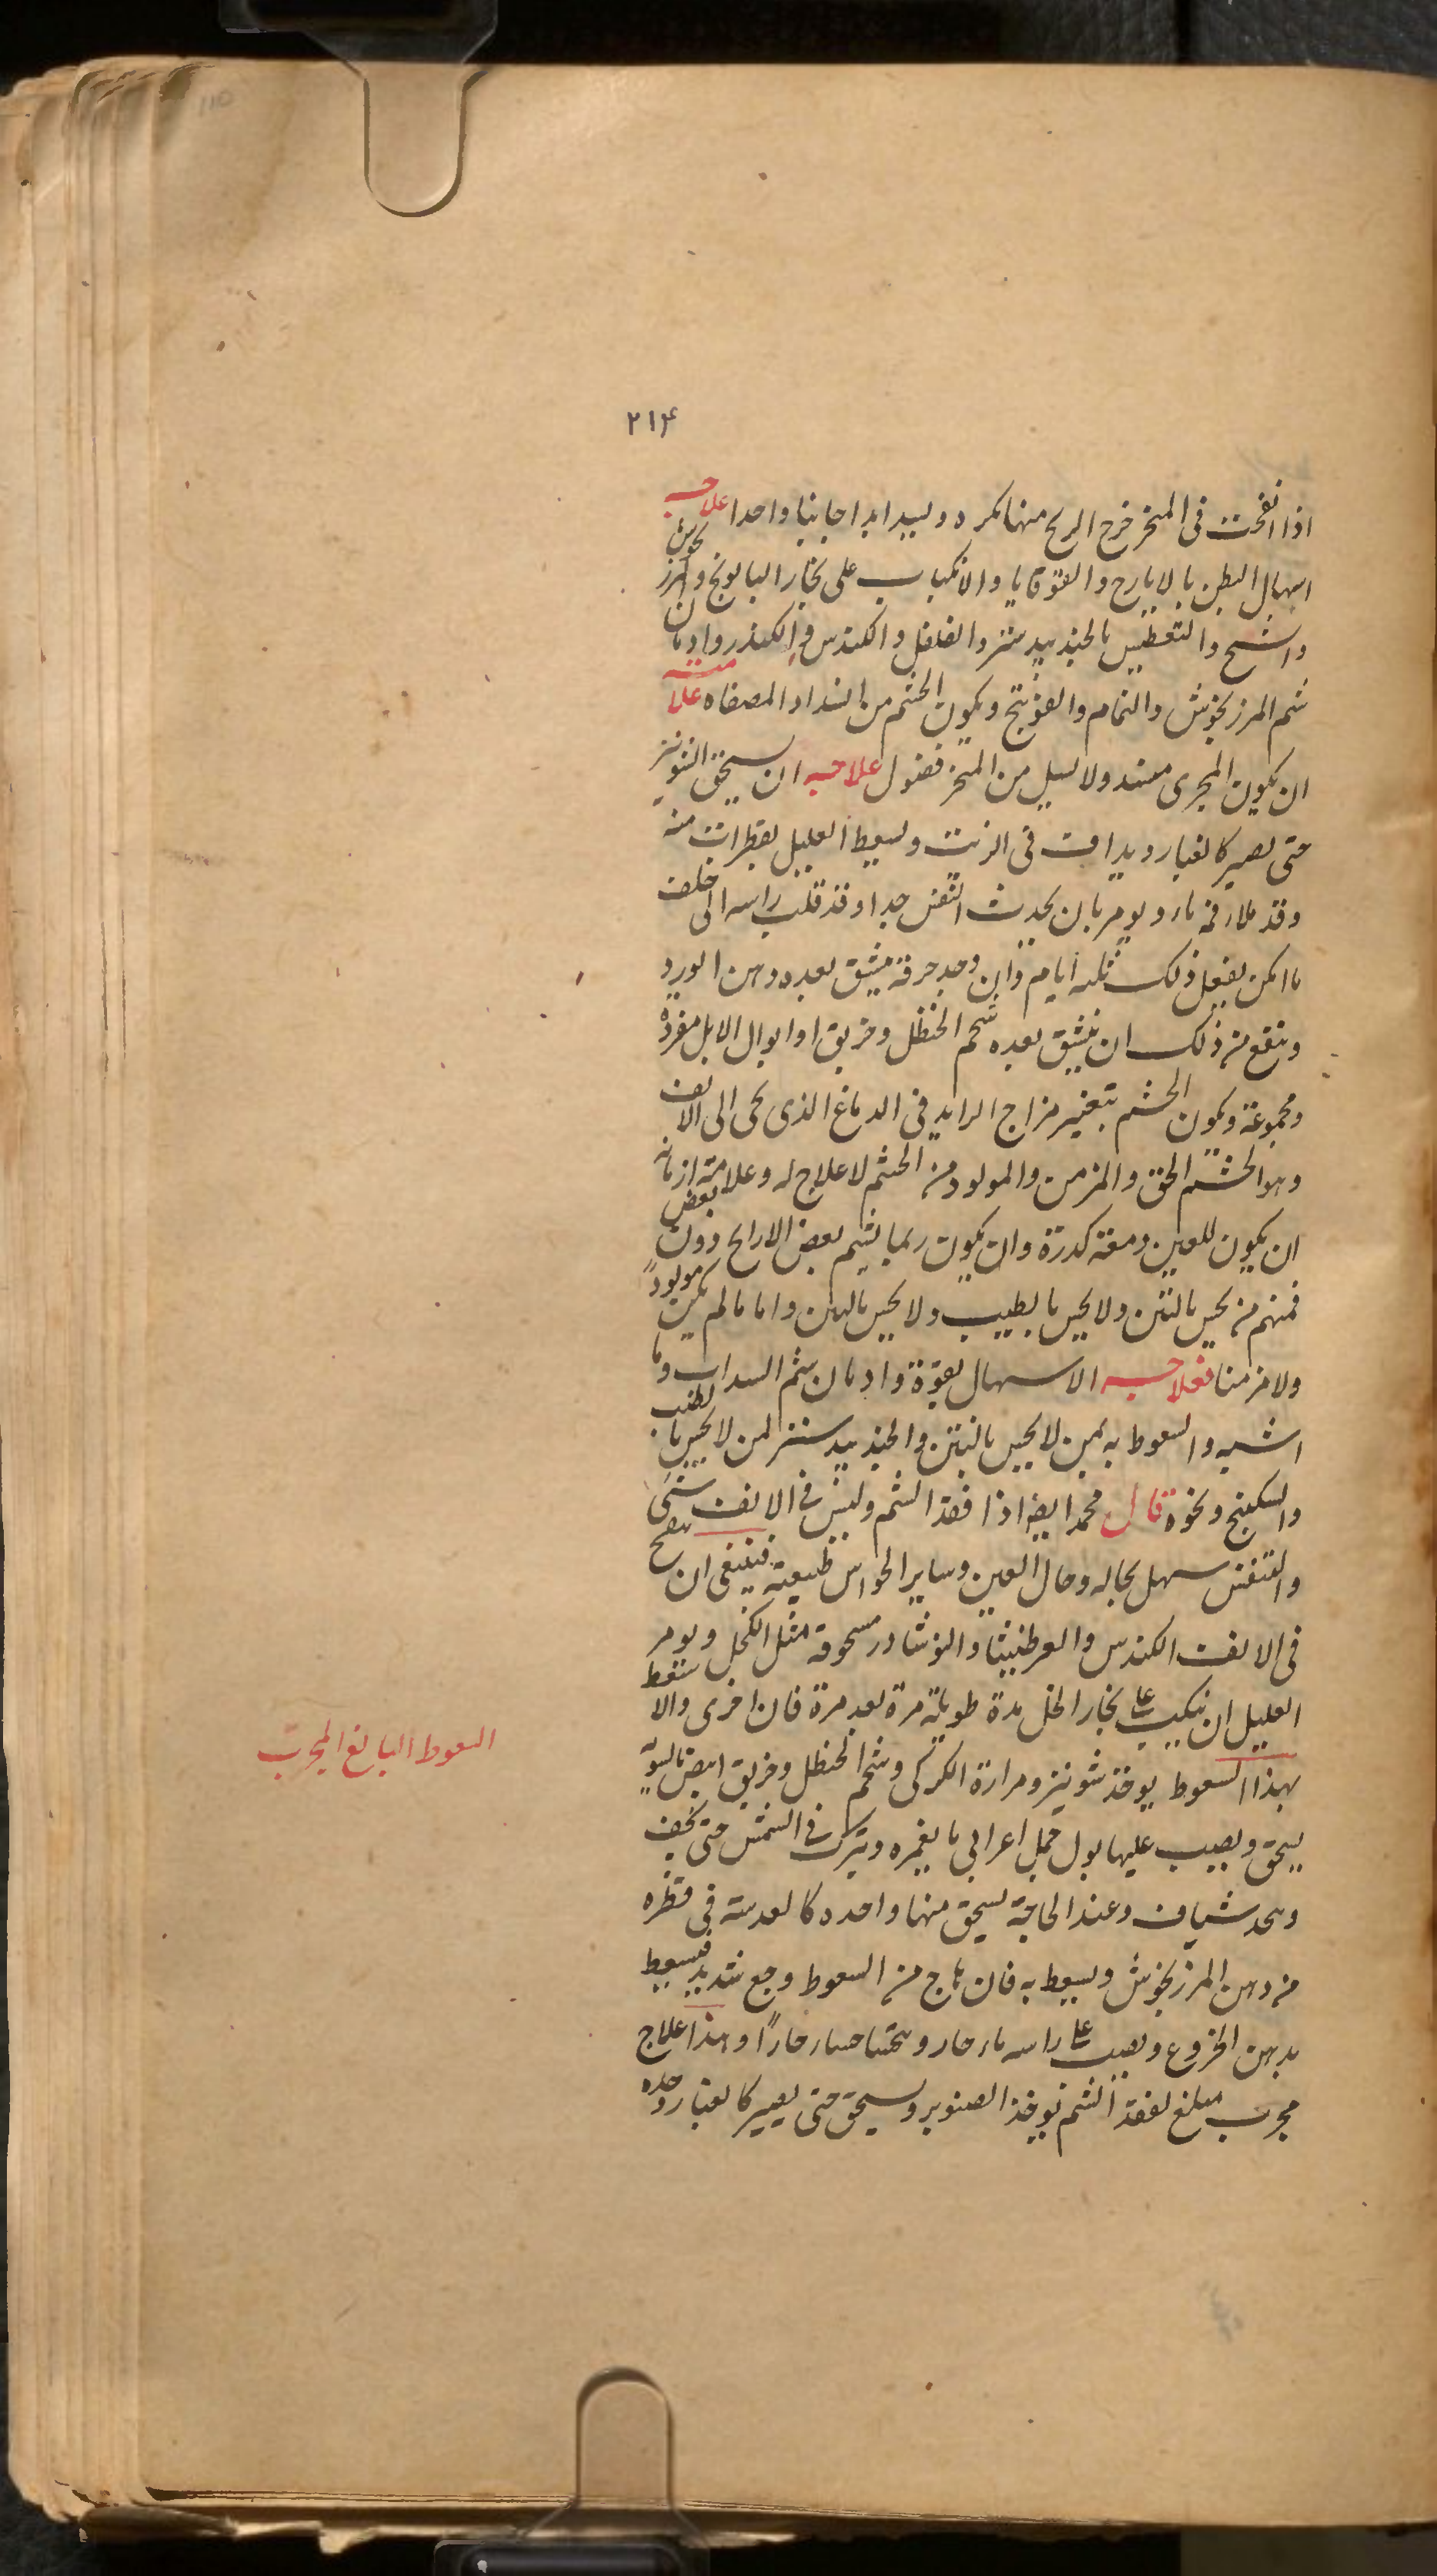 ٢١۴
اذا انفخت فى المنخر خرج الريح منها بكره ويسد ابدا جانبا واحدا علاجه
اسهال البطن بالايارج والقوقايا والانكباب على بخار البابونج والمرزنجوش
والشيح والتعطيس بالجندبيدستر والفلفل والكندس والكندر وادمان
شم المرزنجوش والنمام والفوتنج ويكون الخشم من انسداد المصفاه علامته
ان يكون المجرى منسد ولا يسيل من المنخر فضول علاجه ان يسحق الشونيز
حتى يصير كالغبار ويداف فى الزيت ويسعط العليل بقطرات منه
وقد ملاء فمه ماء ويومر بان يجذب النفس جدا وقد قلب راسه الى خلف
ما امكن يفعل ذلك ثلثه ايام وان وجد حرقة ينشق بعده دهن الورد
وينفع من ذلك ان ينشق بعده شحم الحنظل وخربق او ابوال الابل مفردة
ومجموعة ويكون الخشم بتغير مزاج الزايد فى الدماغ الذى يجى الى الانف
وهو الخشم الحق والمزمن والمولود من الخشم لا علاج له وعلامة ازمانه
ان يكون للعين دمعة كدرة وان يكون ربما يشم بعض الارايح دون بعض
فمنهم من يحس بالنتن ولا يحس بالطيب ولا يحس بالنتن واما ما لم يكن مولودًا
ولا مزمنا فعلاجه الاسهال بقوة وادمان شم السداب وما
اشبه والسعوط به لمن لا يحس بالنتن والجندبيدستر لمن لا يحس بالطيب
والسكبينج ونحوه قال محمد ايضا اذا فقد الشم وليس فى الانف شئ
والتنفس سهل بحاله وحال العين وساير الحواس طبيعية فينبغى ان ينفخ
فى الانف الكندس والعرطنيثا والنوشادر مسحوقة مثل الكحل ويومر
العليل ان ينكب على بخار الخل مدة طويلة مرة بعد مرة فان اجزى والا سعط
بهذا السعوط يوخذ شونيز ومرارة الكركى وشحم الحنظل وخربق ابيض بالسوية
يسحق ويصب عليها بول جمل اعرابى ما يغمره ويترك فى الشمس حتى يجف
ويتخذ شياف وعند الحاجة يسحق منها واحده كالعدسة فى قطره
من دهن المرزنجوش ويسعط به فان هاج من السعوط وجع شديد فيسعط
بدهن الخروع ويصب على راسه ماء حار ويتحسا حساء حارًا وهذا علاج
مجرب مبلغ لفقد الشم يوخذ الصنوبر ويسحق حتى يصير كالغبار وحده
السعوط البالغ المجرب